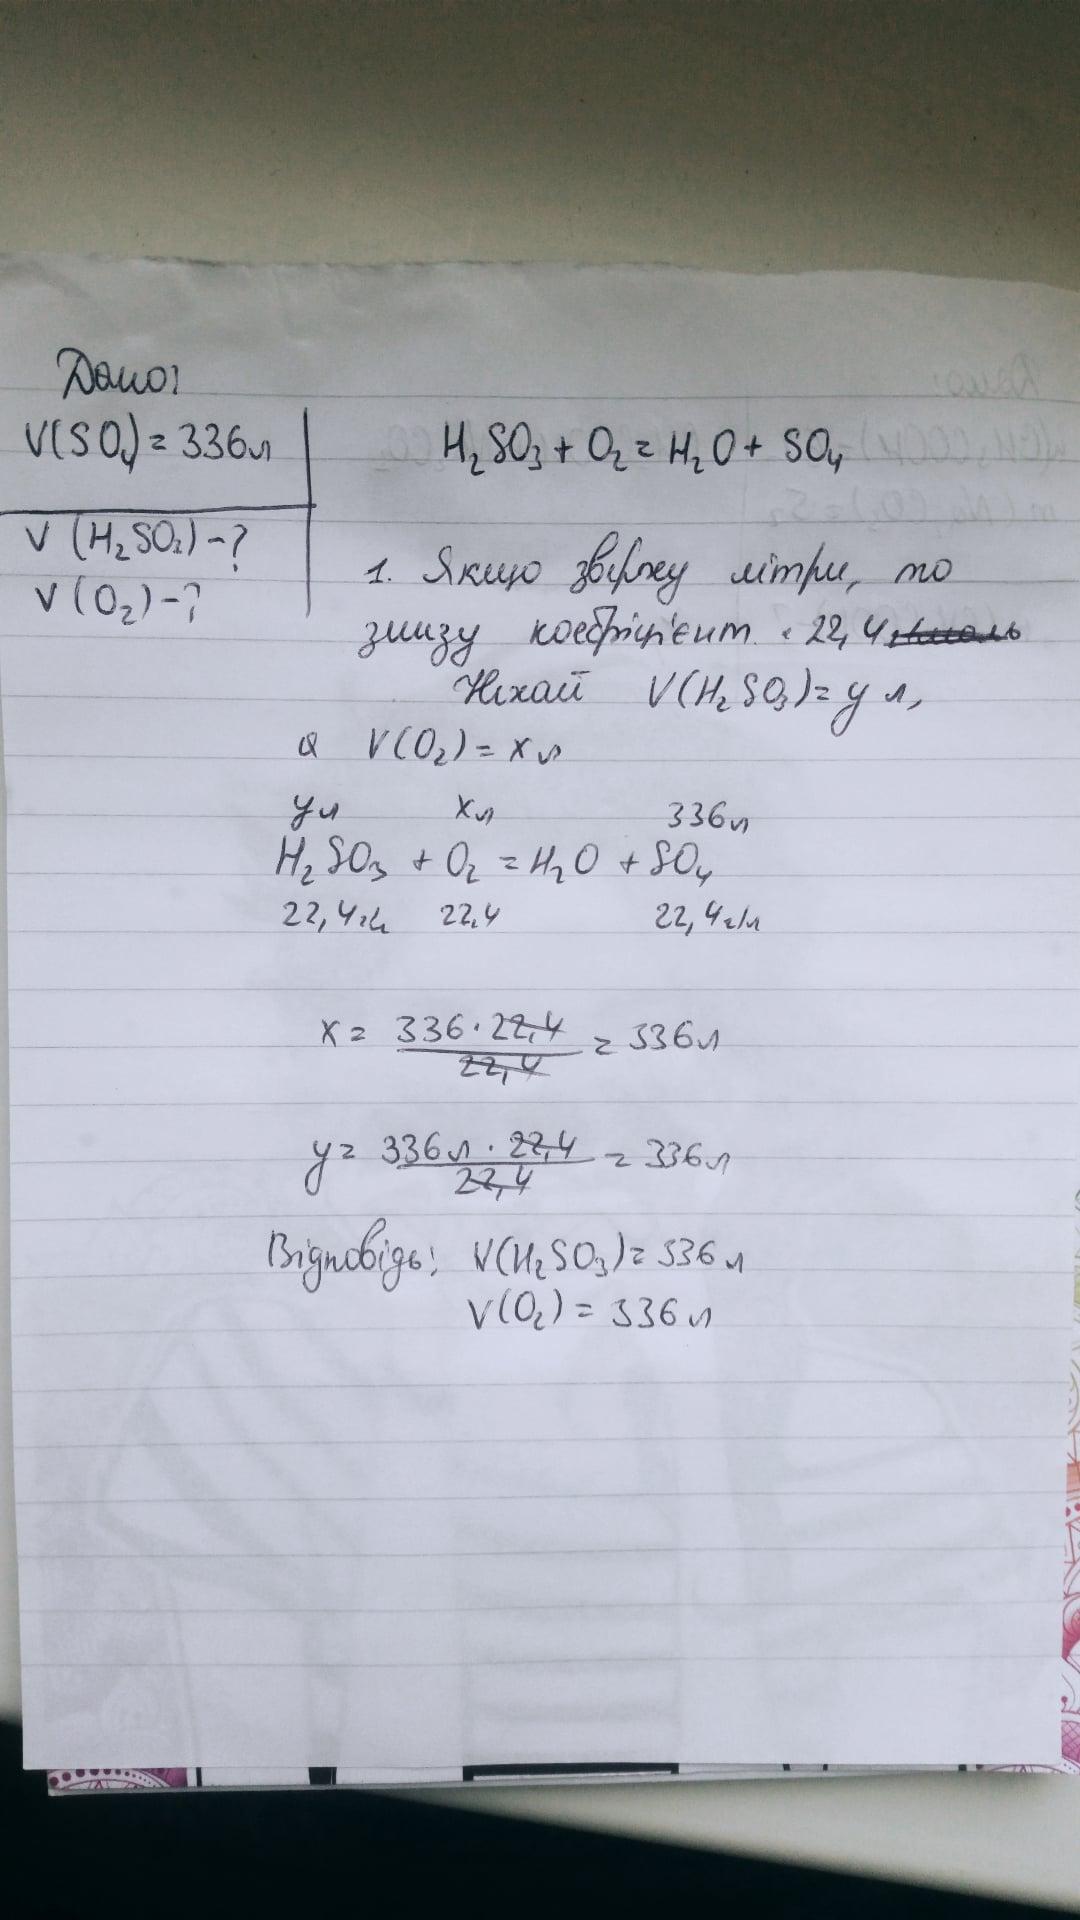 Дано:
V(SO₄) = 336л
H₂SO₃ + O₂ = H₂O + SO₄
V (H₂SO₂) - ?
V (O₂) - ?
1. Якщо зверху літри, то
знизу коефіцієнт · 22,4
Нехай V(H₂SO₃) = y л,
а V(O₂) = x л
y л x л 336 л
H₂SO₃ + O₂ = H₂O + SO₄
22,4 22,4 22,4 г/л
x = 336 · 22,4 / 22,4 = 336 л
y = 336 л · 22,4 / 22,4 = 336 л
Відповідь: V(H₂SO₃) = 336 л
V(O₂) = 336 л